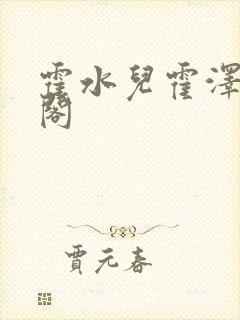 霍水兒霍澤
閣
賈元春